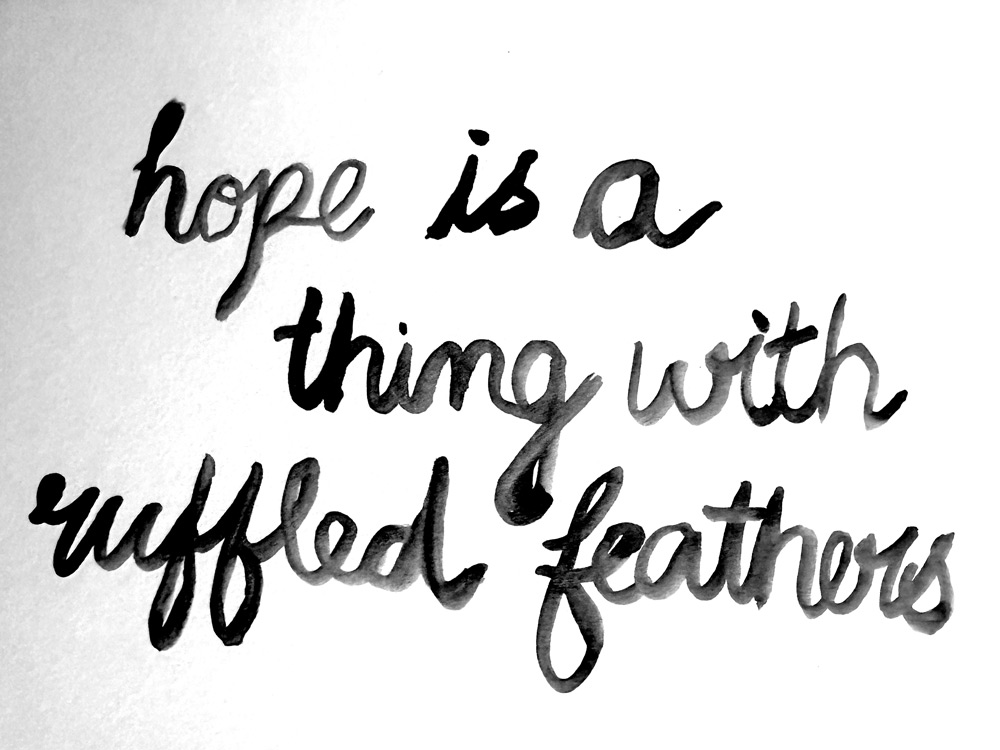 hope is a
thing with
ruffled feathers